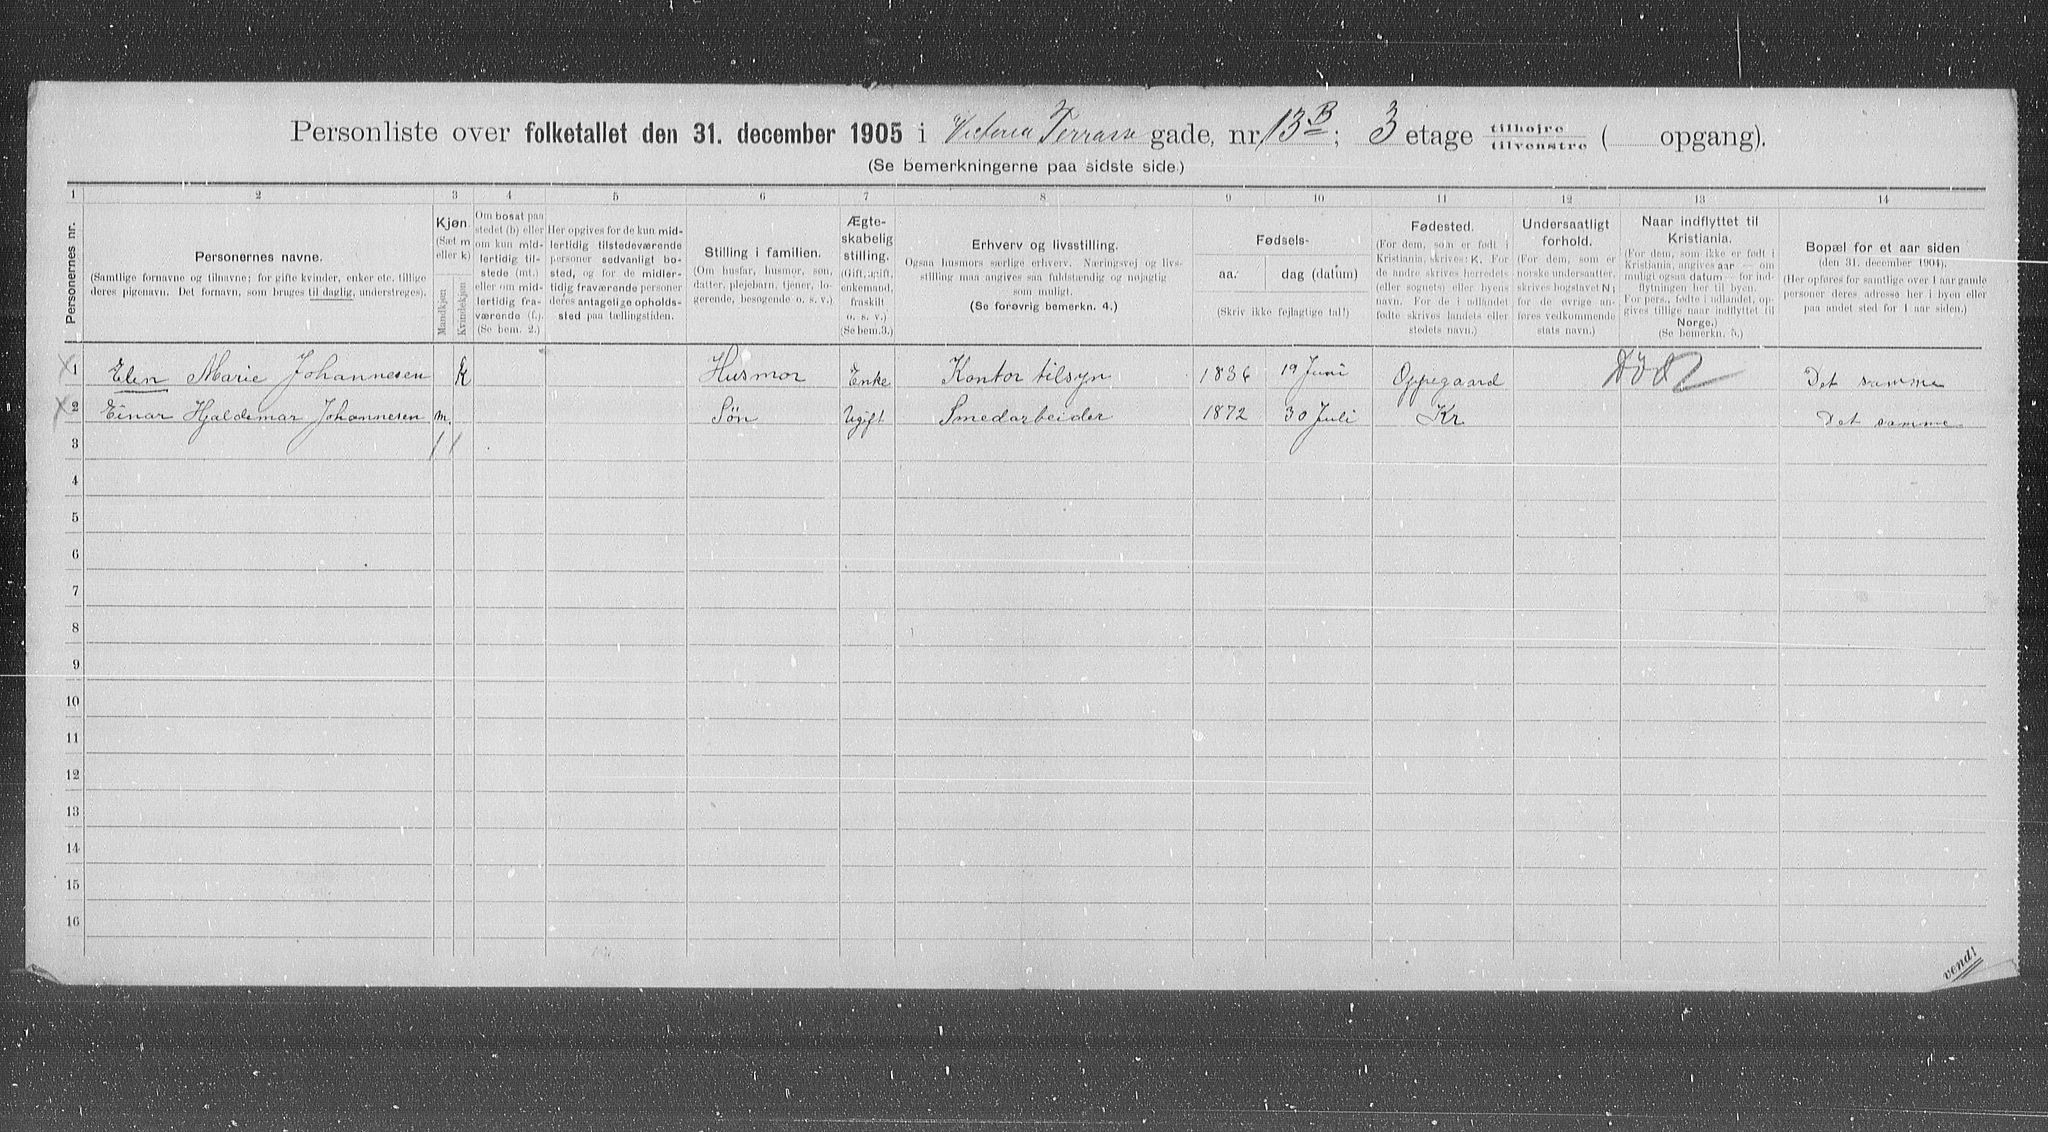 Personliste over folketallet den 31. december 1905 i Victoria Terrasse gade, nr. 13 B; 3 etage tilhøjre / tilvenstre ( opgang).
(Se bemerkningerne paa sidste side.)
1 2 3 4 5 6 7 8 9 10 11 12 13 14
Personernes nr.
Personernes navne.
(Samtlige fornavne og tilnavne; for gifte kvinder, enker etc. tillige
deres pigenavn. Det fornavn, som bruges til daglig, understreges).
Kjøn
(Sæt m
eller k)
Mandkjøn
Kvindekjøn
Om bosat paa
stedet (b) eller
om kun mid-
lertidig til-
stede (mt.)
eller om mid-
lertidig fra-
værende (f.).
(Se bem. 2.)
Her opgives for de kun mid-
lertidig tilstedeværende
personer sedvanligt bo-
sted, og for de midler-
tidig fraværende personer
deres antagelige opholds-
sted paa tællingstiden.
Stilling i familien.
(Om husfar, husmor, søn,
datter, plejebarn, tjener, lo-
gerende, besøgende o. s. v.)
Ægte-
skabelig
stilling.
(Gift, ugift,
enkemand,
fraskilt
o. s. v.)
(Se bem.3.)
Erhverv og livsstilling.
Ogsaa husmors særlige erhverv. Næringsvej og livs-
stilling maa angives saa fuldstændig og nøjagtig
som muligt.
(Se forøvrig bemerkn. 4.)
Fødsels-
aa: dag (datum)
(Skriv ikke fejlagtige tal!)
Fødested.
(For dem, som er født i
Kristiania, skrives: K. For
de andre skrives herredets
(eller sognets) eller byens
navn. For de i udlandet
fødte skrives landets eller
stedets navn.)
Undersaatligt
forhold.
(For dem, som er
norske undersaatter,
skrives bogstavet N;
for de øvrige an-
føres vedkommende
stats navn.)
Naar indflyttet til
Kristiania.
(For dem, som ikke er født i
Kristiania, angives aar — om
muligt ogsaa datum — for ind-
flytningen her til byen.
For pers., fødte i udlandet, op-
gives tillige naar indflyttet til
Norge.)
(Se bemerkn. 5.)
Bopæl for et aar siden
(den 31. december 1904).
(Her opføres for samtlige over 1 aar gamle
personer deres adresse her i byen eller
paa andet sted for 1 aar siden.)
1 Elen Marie Johannesen k Husmor Enke Kontor tilsyn 1836 19 Juni Oppegaard Død Det samme
2 Einar Hjaldemar Johannesen m. Søn Ugift Smedarbeider 1872 30 Juli Kr. Det samme
3 1 1
4
5
6
7
8
9
10
11
12
13
14
15
16
vend!